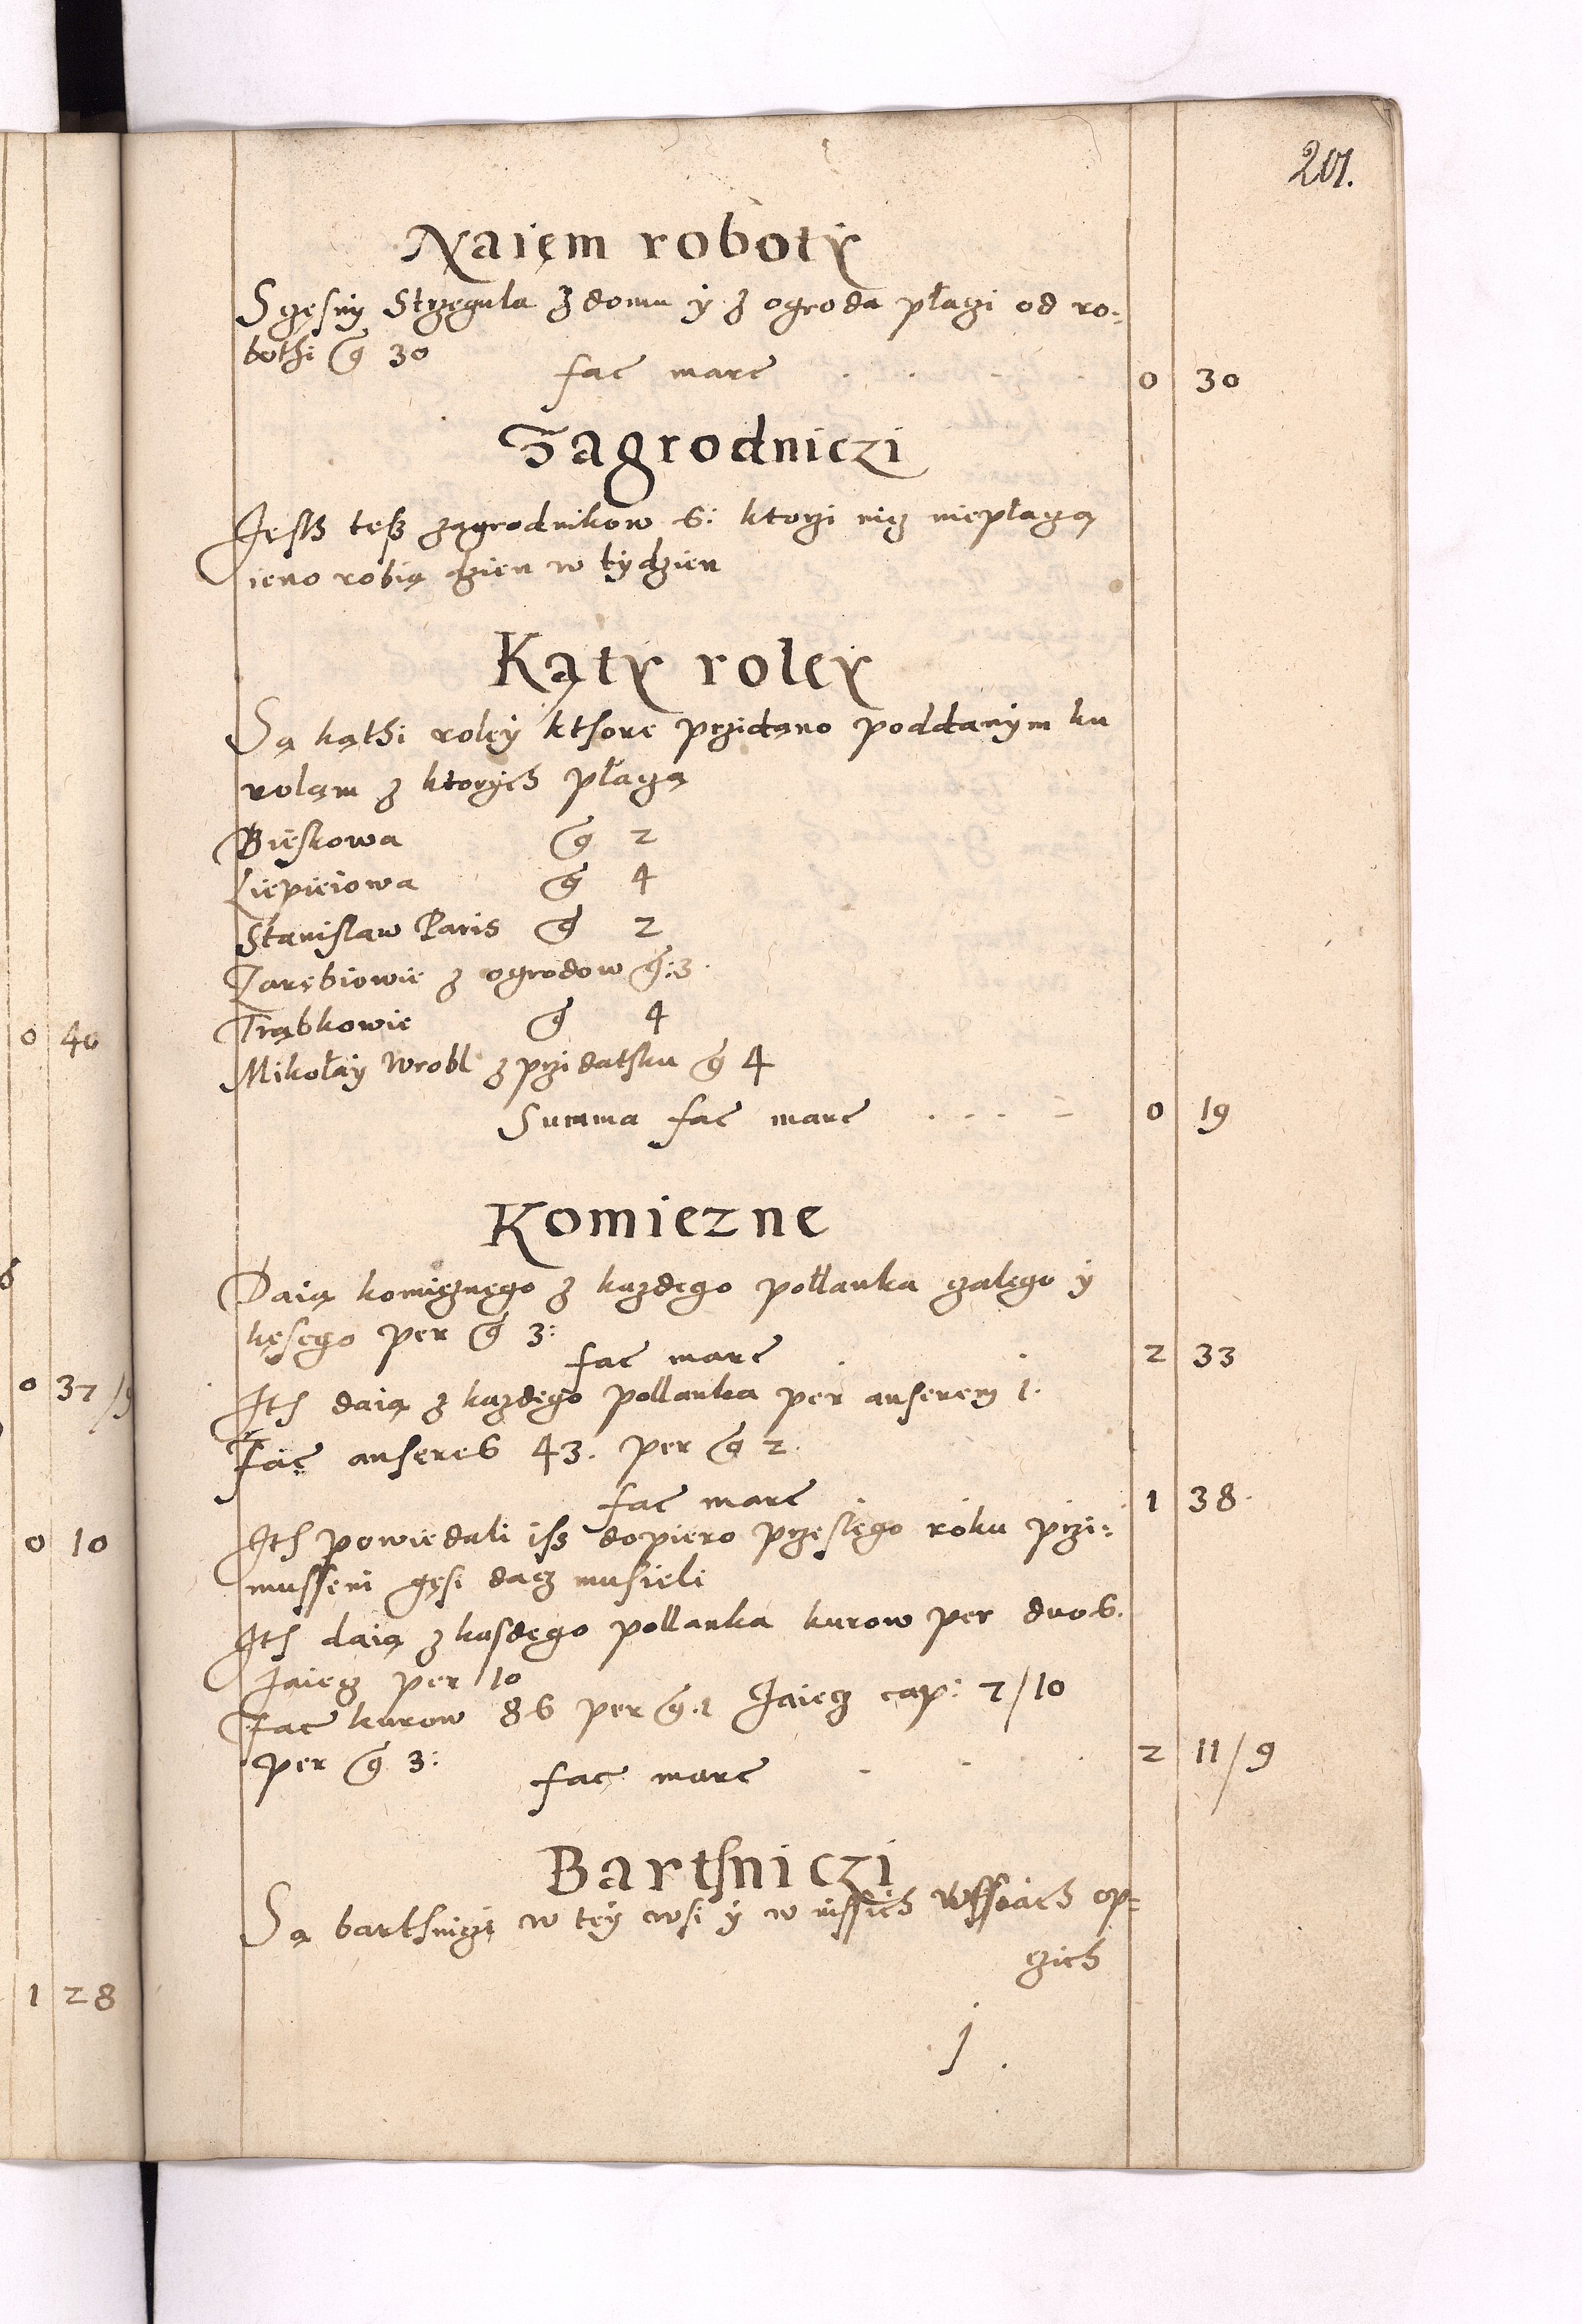 201.
Naięm roboty
Szczęsny Strzęgula z domu ÿ z ogroda płaczi od ro:
bothi g 30
fac marc 0 30
Zagrodniczi
Jesth tesz zagrodnikow 6: ktorzi nicz niepłaczą
ieno robią dzien w tÿdzien
Kąty roley
Są kąthi rolęÿ kthore przidano poddanÿm ku
rolam z ktorÿch płaczą
Bięskowa g 2
Liepieiowa g 4
Stanislaw Paris g 2
Zarębiowie z ogrodow g: 3
Trąbkowie g 4
Mikołaÿ Wrobl z przidathku g 4
Summa fac marc 0 19
Komiezne
Daią komięznęgo z kazdęgo pollanka czalęgo ÿ
kęsego per g 3:
fac marc 2 33
Ith daią z kazdęgo pollanka per anserem 1.
Fac anseres 43. per g 2.
fac marc 1 38
Ith powiedali isz dopiero przęslęgo roku przi:
musseni gęsi dacz musieli
Ith daią z kasdęgo pollanka kurow per duos.
Jaiecz per 10
Fac kurow 86 per g. 1 Jaiecz cap: 7/10
per g 3:
fac marc 2 11/9
Barthniczi
Są barthniczi w tęÿ wsi ÿ w inssich wssiach op=
czich
0 40
0 37/9
0 10
1 28